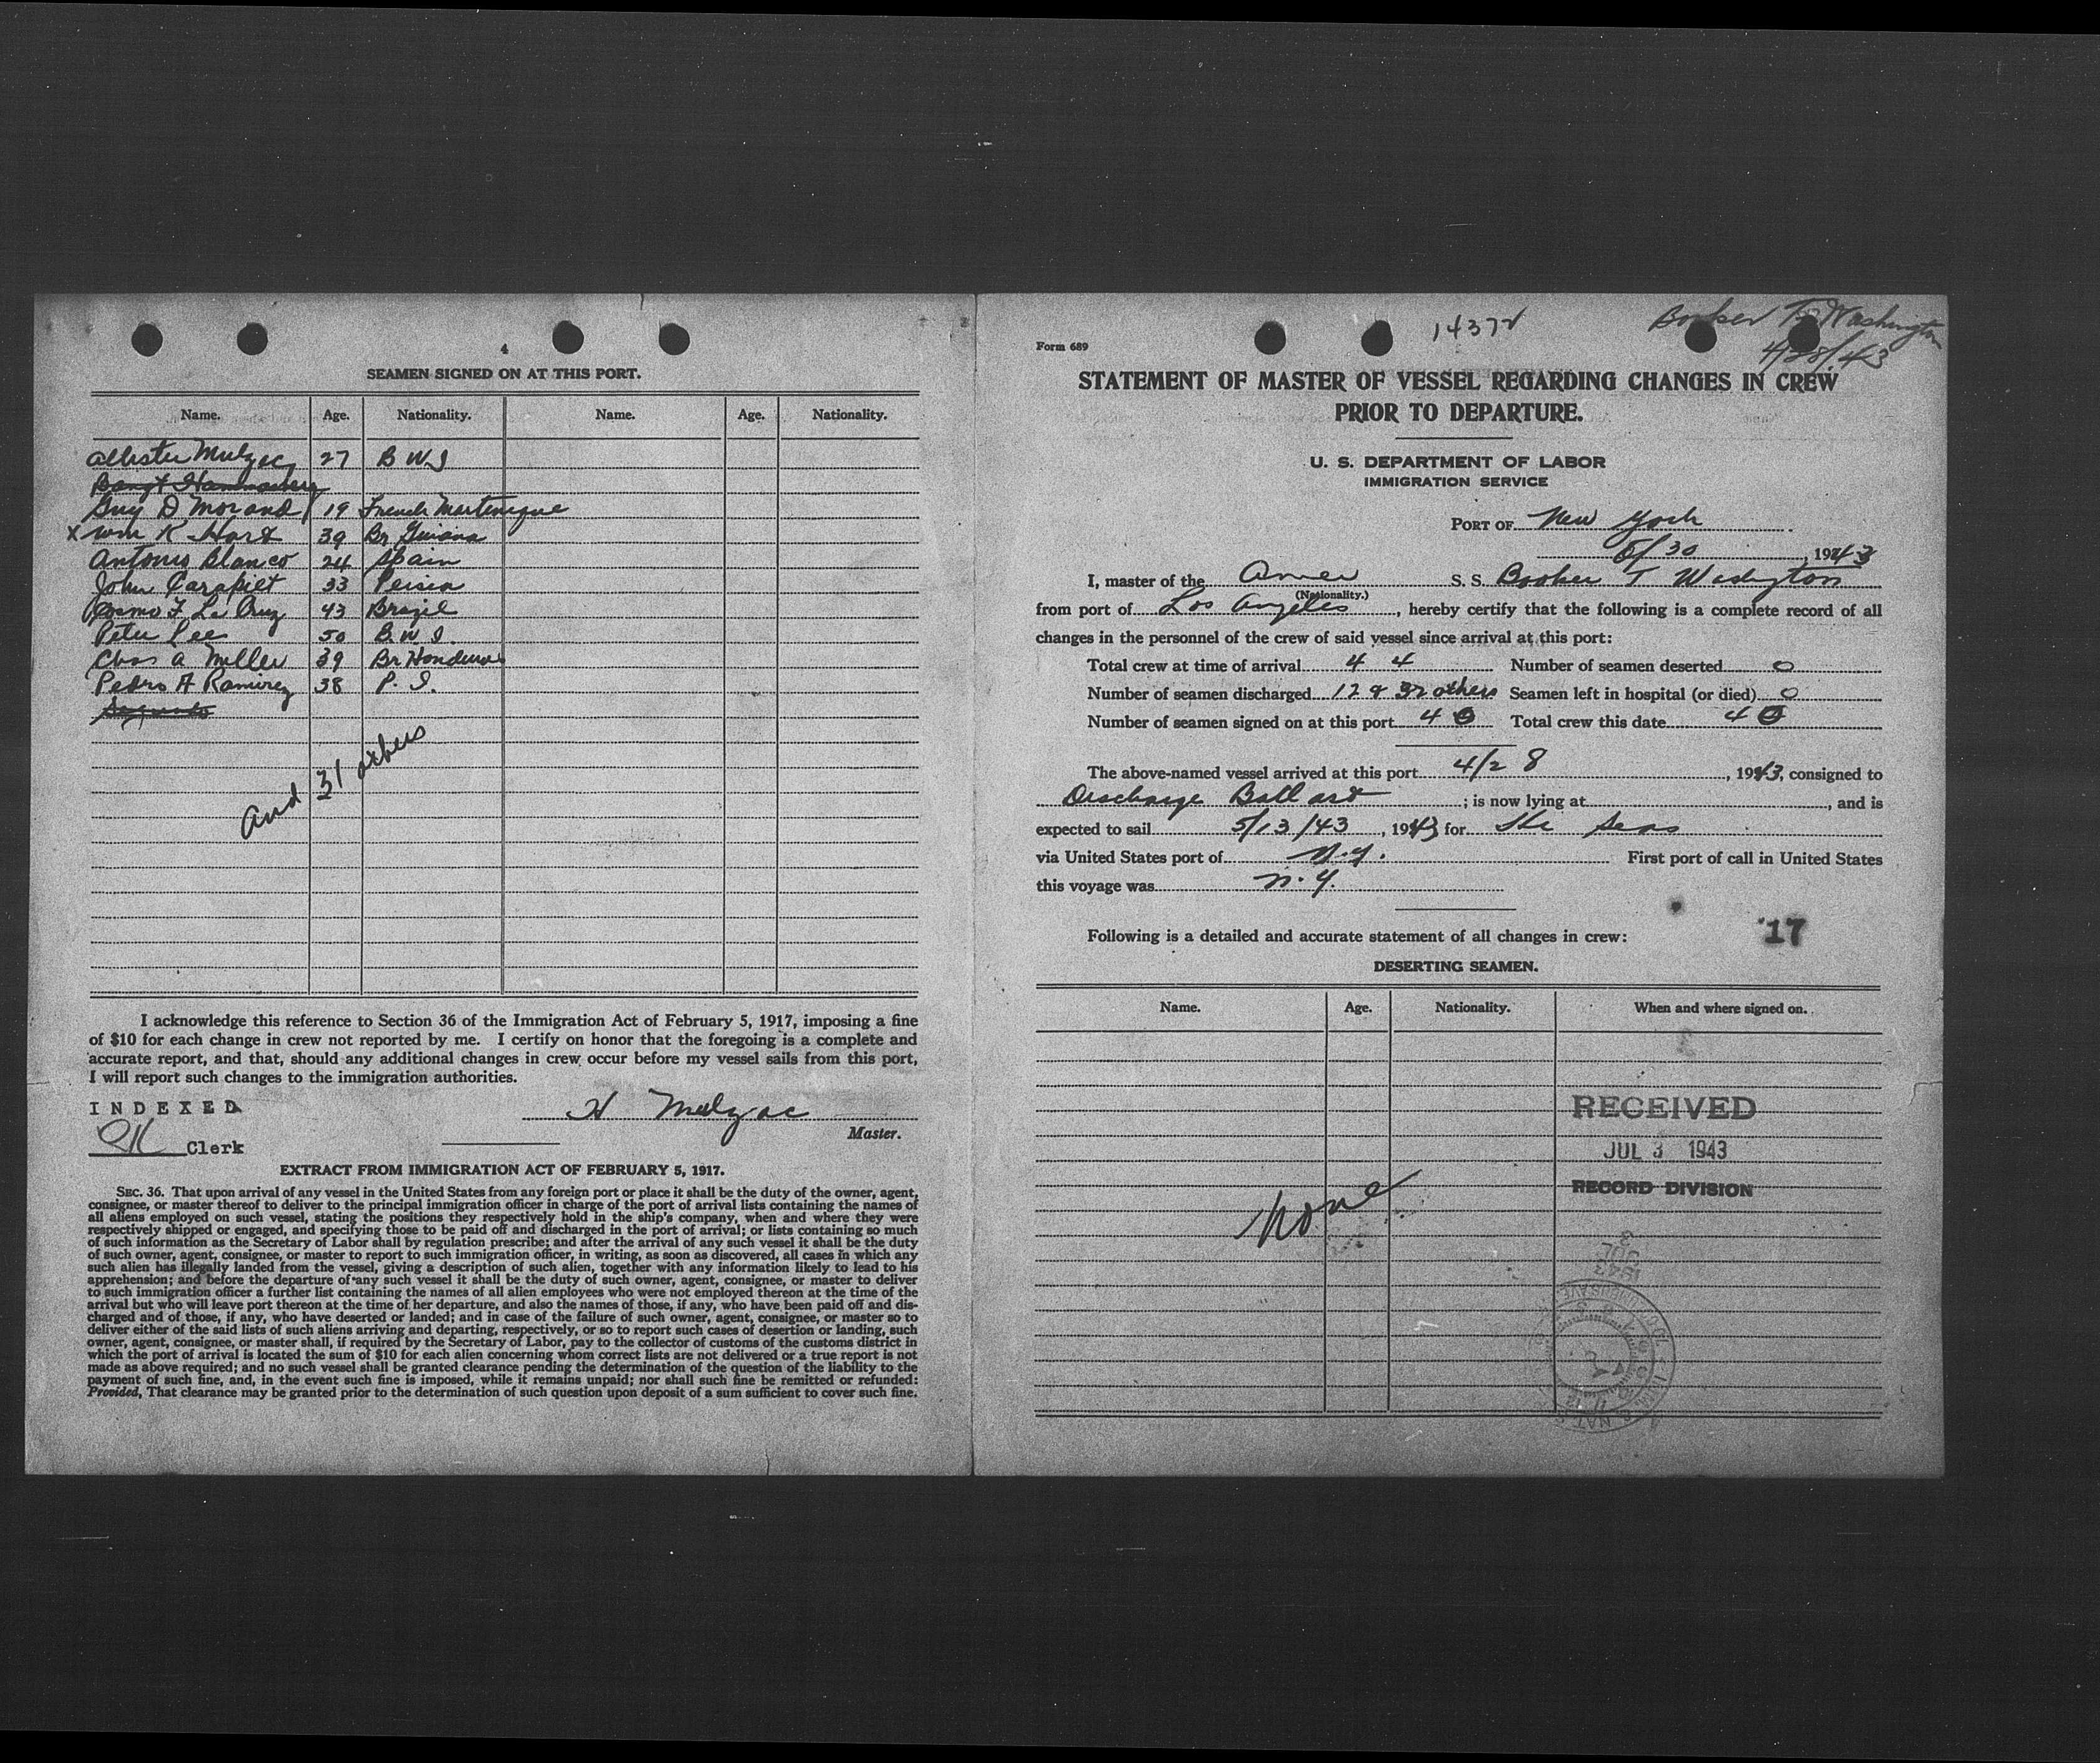 4
SEAMEN SIGNED ON AT THIS PORT.
Name. Age. Nationality. Name. Age. Nationality.
Allister Mulzac 27 B W I
Guy D Morand 19 French Martenique
X Wm K Hart 39 Br Guiana
Antonio Blanco 24 Spain
John Carapiet 33 Persia
Cosmo F La Cruz 43 Brazil
Peter Lee 50 B. W. I.
Chas A Miller 39 Br Honduras
Pedro A Ramirez 38 P. I.
And 31 others
I acknowledge this reference to Section 36 of the Immigration Act of February 5, 1917, imposing a fine
of $10 for each change in crew not reported by me. I certify on honor that the foregoing is a complete and
accurate report, and that, should any additional changes in crew occur before my vessel sails from this port,
I will report such changes to the immigration authorities.
INDEXED
H Mulzac
Master.
Clerk
EXTRACT FROM IMMIGRATION ACT OF FEBRUARY 5, 1917.
SEC. 36. That upon arrival of any vessel in the United States from any foreign port or place it shall be the duty of the owner, agent,
consignee, or master thereof to deliver to the principal immigration officer in charge of the port of arrival lists containing the names of
all aliens employed on such vessel, stating the positions they respectively hold in the ship's company, when and where they were
respectively shipped or engaged, and specifying those to be paid off and discharged in the port of arrival; or lists containing so much
of such information as the Secretary of Labor shall by regulation prescribe; and after the arrival of any such vessel it shall be the duty
of such owner, agent, consignee, or master to report to such immigration officer, in writing, as soon as discovered, all cases in which any
such alien has illegally landed from the vessel, giving a description of such alien, together with any information likely to lead to his
apprehension; and before the departure of any such vessel it shall be the duty of such owner, agent, consignee, or master to deliver
to such immigration officer a further list containing the names of all alien employees who were not employed thereon at the time of the
arrival but who will leave port thereon at the time of her departure, and also the names of those, if any, who have been paid off and dis-
charged and of those, if any, who have deserted or landed; and in case of the failure of such owner, agent, consignee, or master so to
deliver either of the said lists of such aliens arriving and departing, respectively, or so to report such cases of desertion or landing, such
owner, agent, consignee, or master shall, if required by the Secretary of Labor, pay to the collector of customs of the customs district in
which the port of arrival is located the sum of $10 for each alien concerning whom correct lists are not delivered or a true report is not
made as above required; and no such vessel shall be granted clearance pending the determination of the question of the liability to the
payment of such fine, and, in the event such fine is imposed, while it remains unpaid; nor shall such fine be remitted or refunded:
Provided, That clearance may be granted prior to the determination of such question upon deposit of a sum sufficient to cover such fine.
Booker T. Washington
14372
4/28/43
Form 689
STATEMENT OF MASTER OF VESSEL REGARDING CHANGES IN CREW
PRIOR TO DEPARTURE.
U. S. DEPARTMENT OF LABOR
IMMIGRATION SERVICE
PORT OF New York
5/30, 1943
I, master of the Amer S. S. Booker T Washington
(Nationality.)
from port of Los Angeles, hereby certify that the following is a complete record of all
changes in the personnel of the crew of said vessel since arrival at this port:
Total crew at time of arrival 44 Number of seamen deserted 0
Number of seamen discharged 12 & 32 others Seamen left in hospital (or died) 0
Number of seamen signed on at this port 40 Total crew this date 40
The above-named vessel arrived at this port 4/28, 1943, consigned to
Discharge Ballast; is now lying at, and is
expected to sail 5/13/43, 1943 for the Seas
via United States port of N.Y. First port of call in United States
this voyage was N.Y.
Following is a detailed and accurate statement of all changes in crew:
17
DESERTING SEAMEN.
Name. Age. Nationality. When and where signed on.
RECEIVED
JUL 3 1943
RECORD DIVISION
None
1943
JUL
3